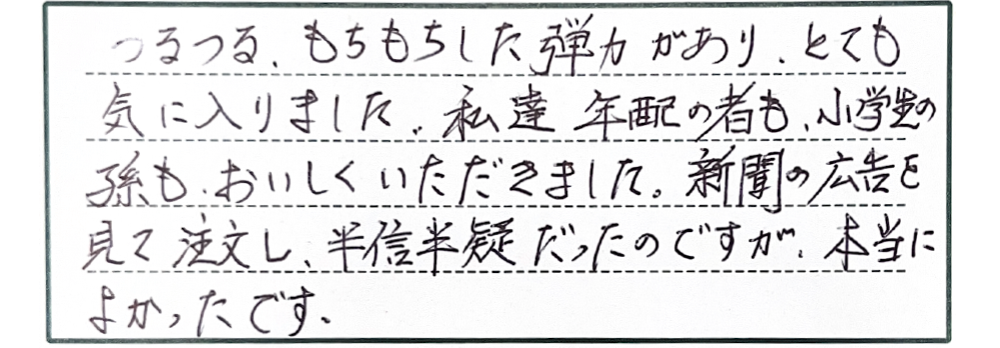 つるつる、もちもちした弾力があり、とても
気に入りました。私達年配の者も、小学生の
孫も、おいしくいただきました。新聞の広告を
見て注文し、半信半疑だったのですが、本当に
よかったです。